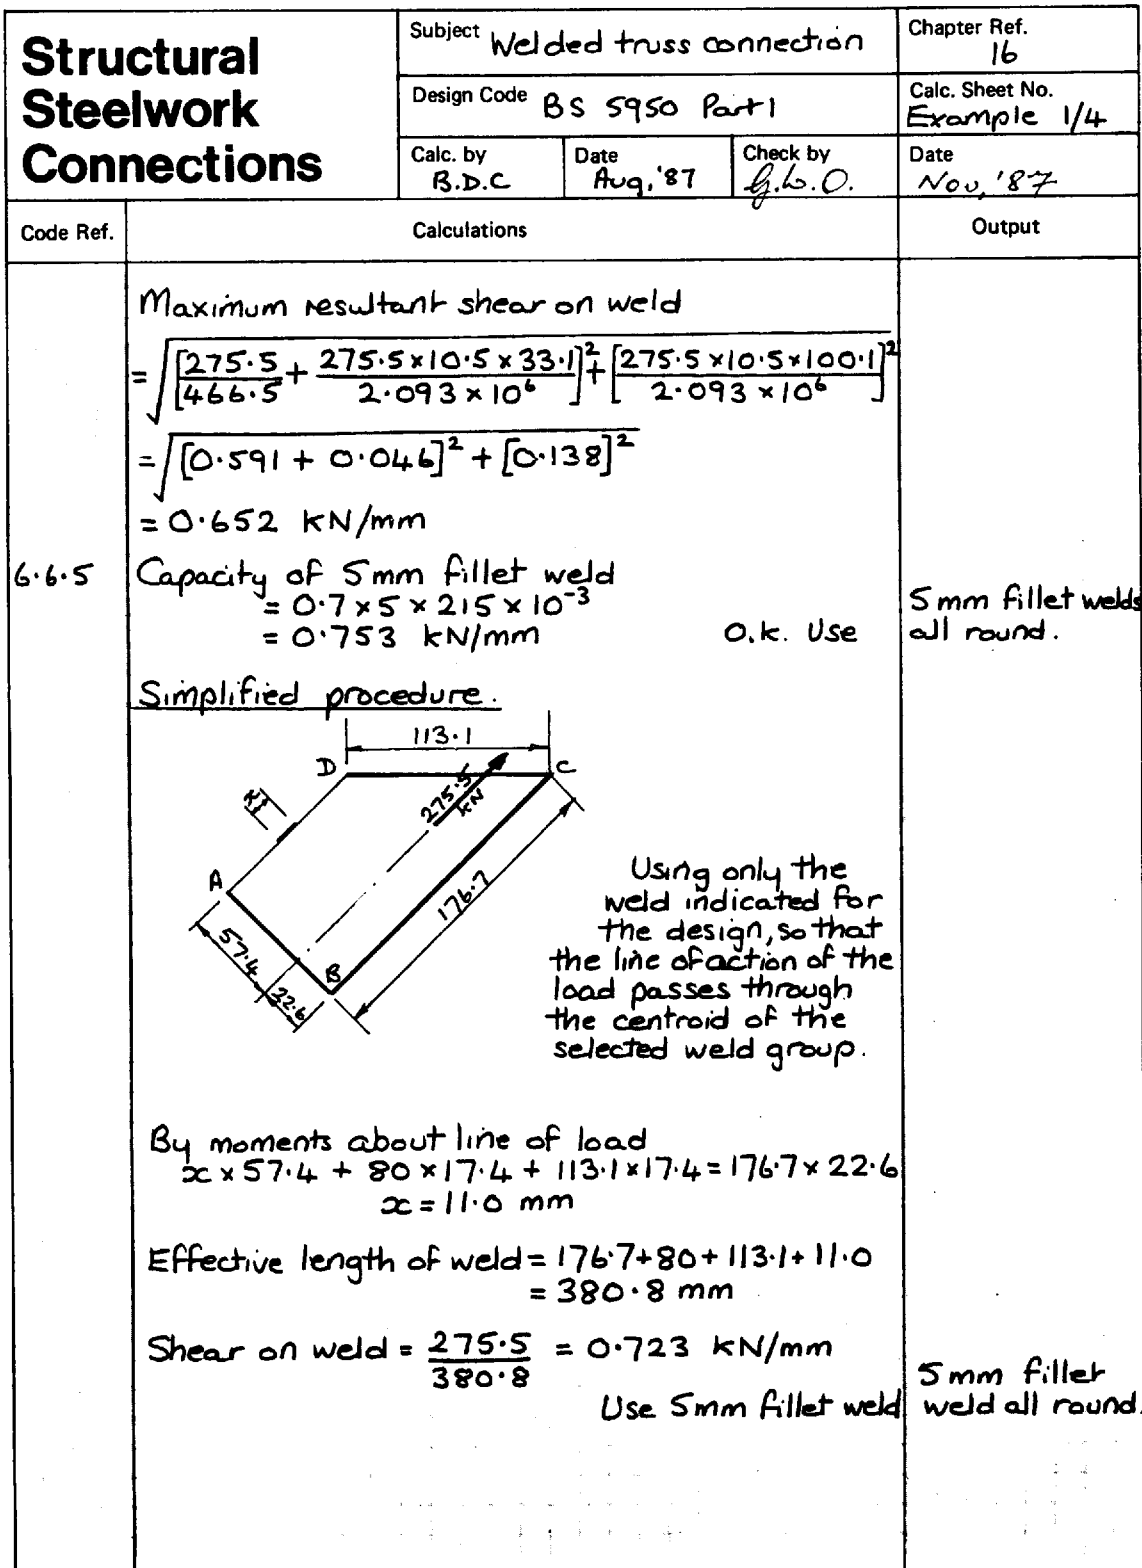 Structural
Steelwork
Connections
Subject Welded truss connection
Chapter Ref.
16
Design Code BS 5950 Part 1
Calc. Sheet No.
Example 1/4
Calc. by
B.D.C
Date
Aug, '87
Check by
G.W.O.
Date
Nov, '87
Code Ref.
Calculations
Output
Maximum resultant shear on weld
= √([275·5/466·5 + 275·5×10·5×33·1/2·093×10⁶]² + [275·5×10·5×100·1/2·093×10⁶]²)
= √([0·591 + 0·046]² + [0·138]²)
= 0·652 kN/mm
6·6·5
Capacity of 5mm fillet weld
= 0·7 × 5 × 215 × 10⁻³
= 0·753 kN/mm
O.k. Use
5mm fillet welds
all round.
Simplified procedure.
113·1
D
C
x
275·5
kN
A
176·7
57·4
B
22·6
Using only the
weld indicated for
the design, so that
the line of action of the
load passes through
the centroid of the
selected weld group.
By moments about line of load
x × 57·4 + 80 × 17·4 + 113·1 × 17·4 = 176·7 × 22·6
x = 11·0 mm
Effective length of weld = 176·7+80+113·1+11·0
= 380·8 mm
Shear on weld = 275·5/380·8 = 0·723 kN/mm
Use 5mm fillet weld
5mm fillet
weld all round.